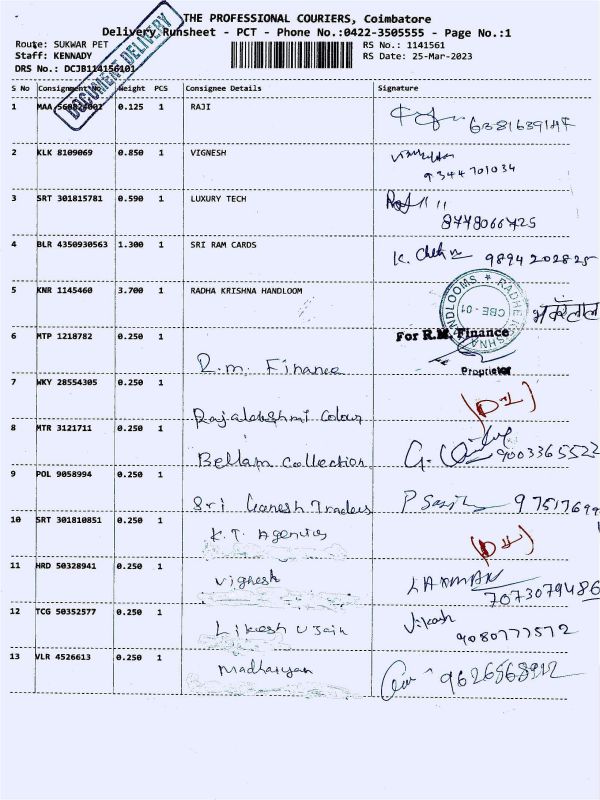 THE PROFESSIONAL COURIERS, Coimbatore
Delivery Runsheet - PCT - Phone No.:0422-3505555 - Page No.:1
Route: SUKWAR PET
RS No.: 1141561
Staff: KENNADY
RS Date: 25-Mar-2023
DRS No.: DCJB114156101
DOCUMENT DELIVERY
S No Consignment No. Weight PCS Consignee Details Signature
1 MAA 0.125 1 RAJI
2 KLK 8109069 0.850 1 VIGNESH
9344701034
3 SRT 301815781 0.590 1 LUXURY TECH
8778066425
4 BLR 4350930563 1.300 1 SRI RAM CARDS 9894202825
5 KNR 1145460 3.700 1 RADHA KRISHNA HANDLOOM
RADHE KRISHNA HANDLOOMS
CBE - 01
6 MTP 1218782 0.250 1 R.M. Finance
For R.M. Finance
Proprietor
7 WKY 28554305 0.250 1 Rajalakshmi Colour
8 MTR 3121711 0.250 1 Bellam Collection 9003365522
9 POL 9058994 0.250 1 Sri Ganesh Traders
10 SRT 301810851 0.250 1 K.T. Agencies
11 HRD 50328941 0.250 1 Vighesh LAXMAN
7073079486
12 TCG 50352577 0.250 1 Likesh U Jain Vikash
9080777572
13 VLR 4526613 0.250 1